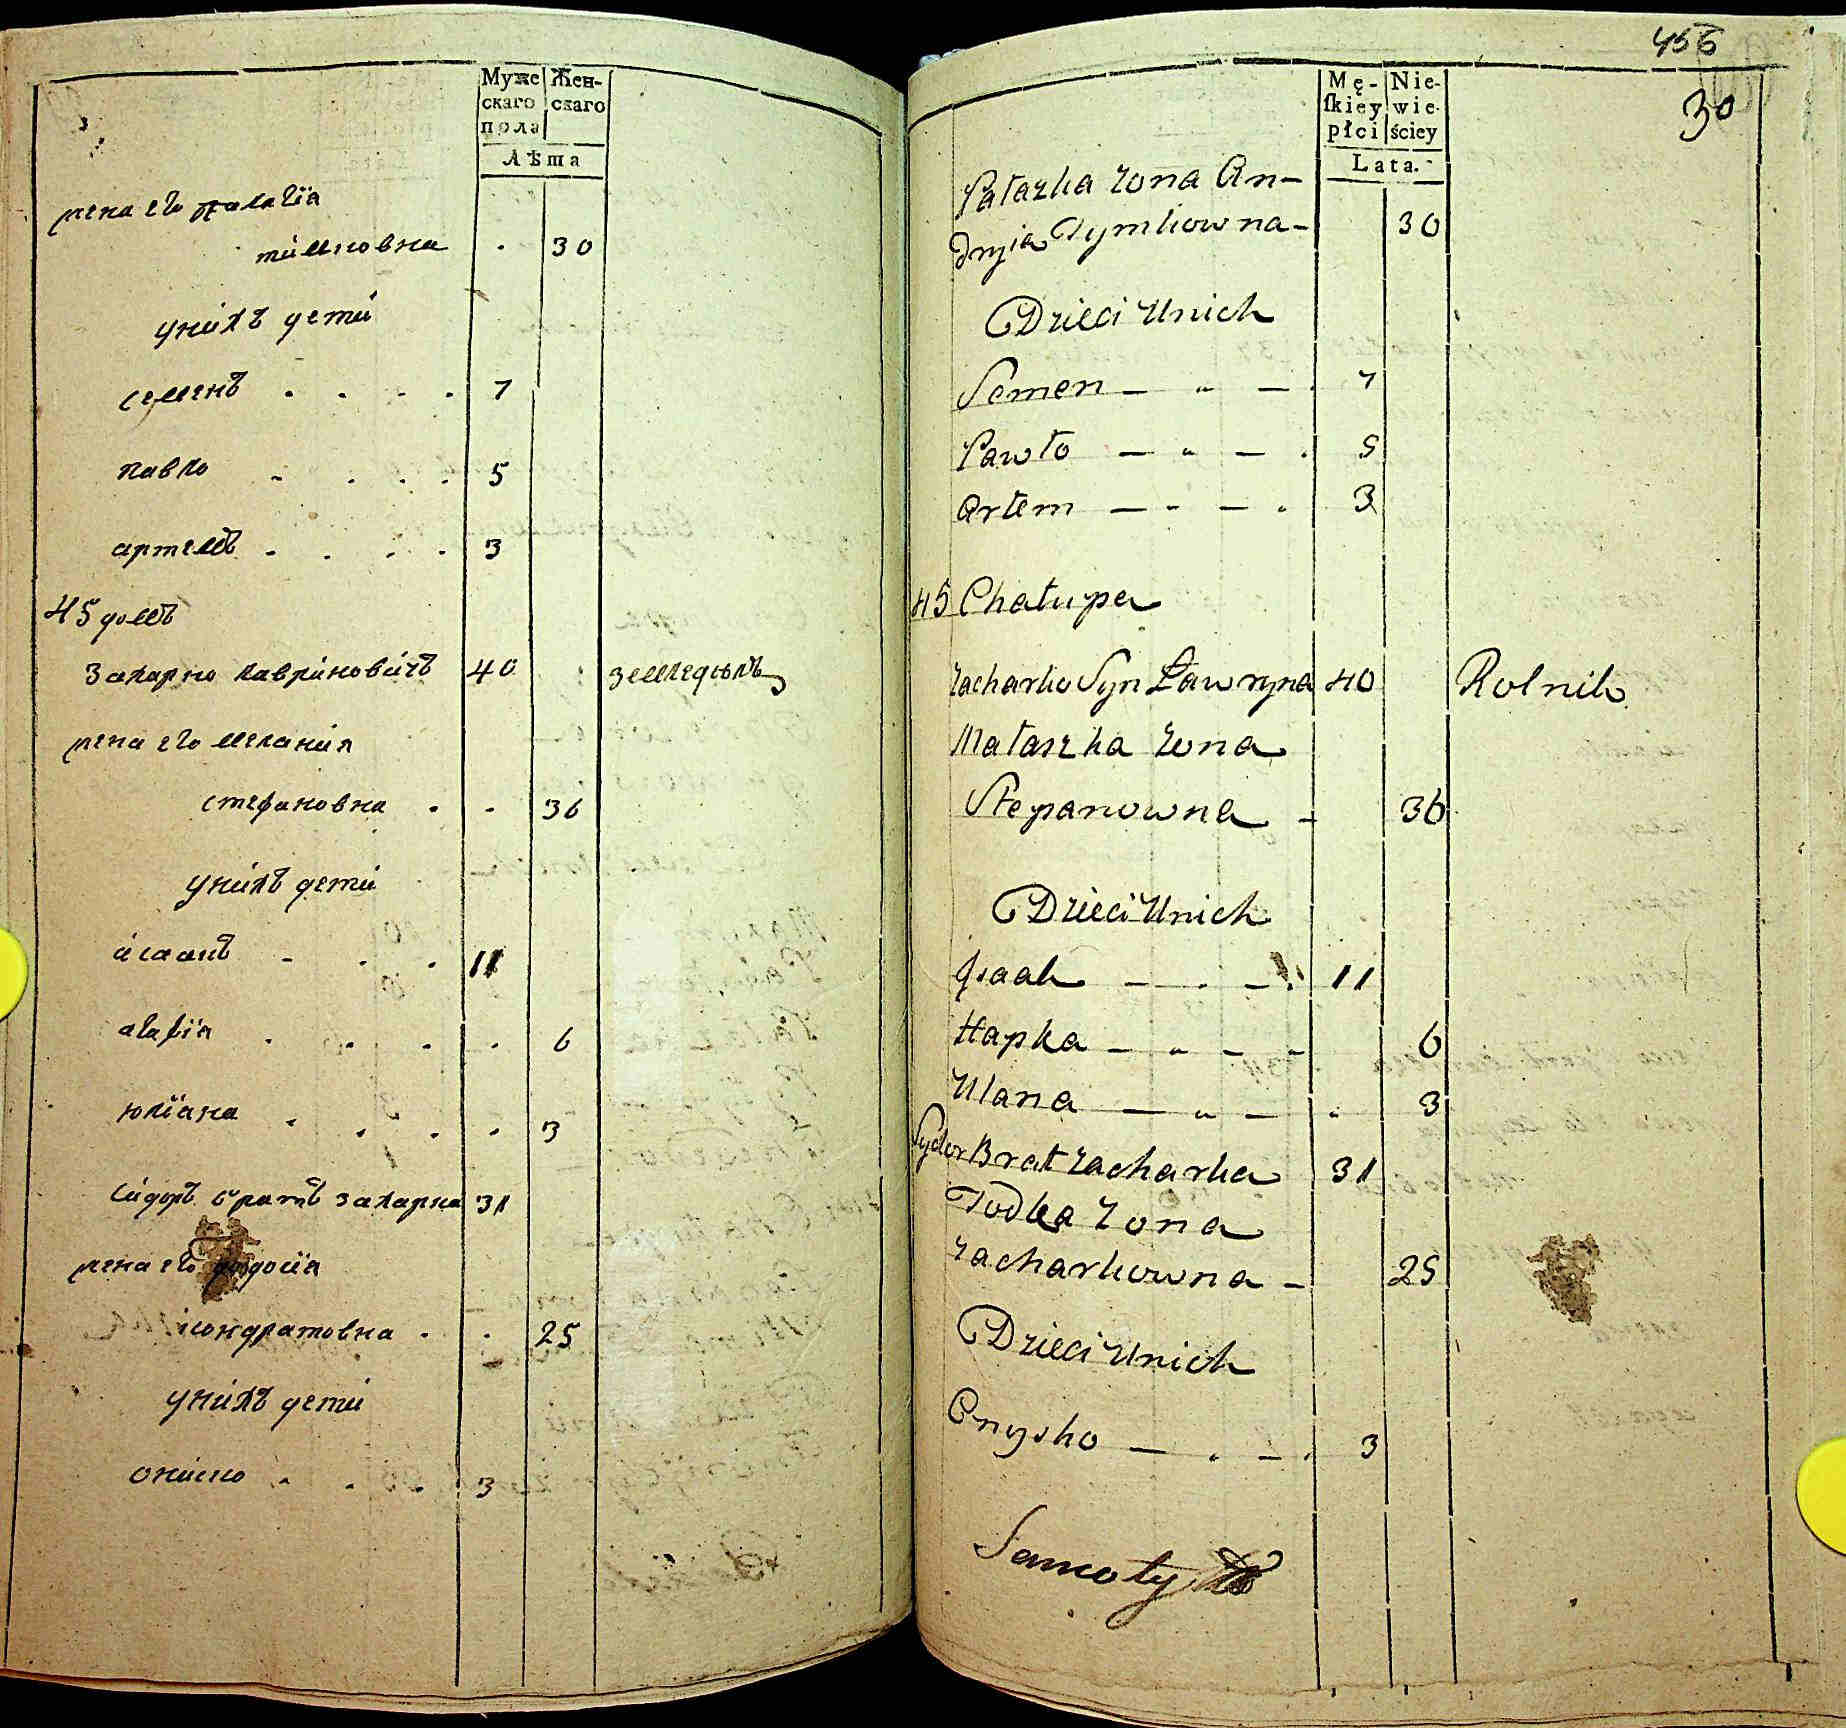 Муже Жен-
скаго скаго
пола
Лѣта
жена его палагія
тимковна . 30
унихъ дети
семенъ . . . . 7
павло . . . . 5
артемъ . . . . 3
45 домъ
Захарко лавриновичъ 40 земледелъ
жена его мелания
стефановна . . 36
унихъ дети
исаакъ . . . 11
агафія . . . . 6
юліана . . . . 3
сидоръ братъ захарка 31
жена его феодосія
кондратовна . . 25
унихъ дети
ониско . . . 3
456
30
Mę- Nie-
ſkiey wie-
płci ściey
Lata.
Pałazka zona An-
dryia Tymkowna - 30
Dzieci Unich
Semen — „ — . 7
Pawło — „ — . 5
Artem — - — . 3
45 Chałupa
Zacharko Syn Ławryna 40 Rolnik
Małaszka zona
Stepanowna - 36
Dzieci Unich
Isaak — . — . 11
Hapka — „ — - 6
Ulana — „ — . 3
Sydor Brat Zacharka 31
Todka zona
Zacharkowna - 25
Dzieci Unich
Onysko — . — . 3